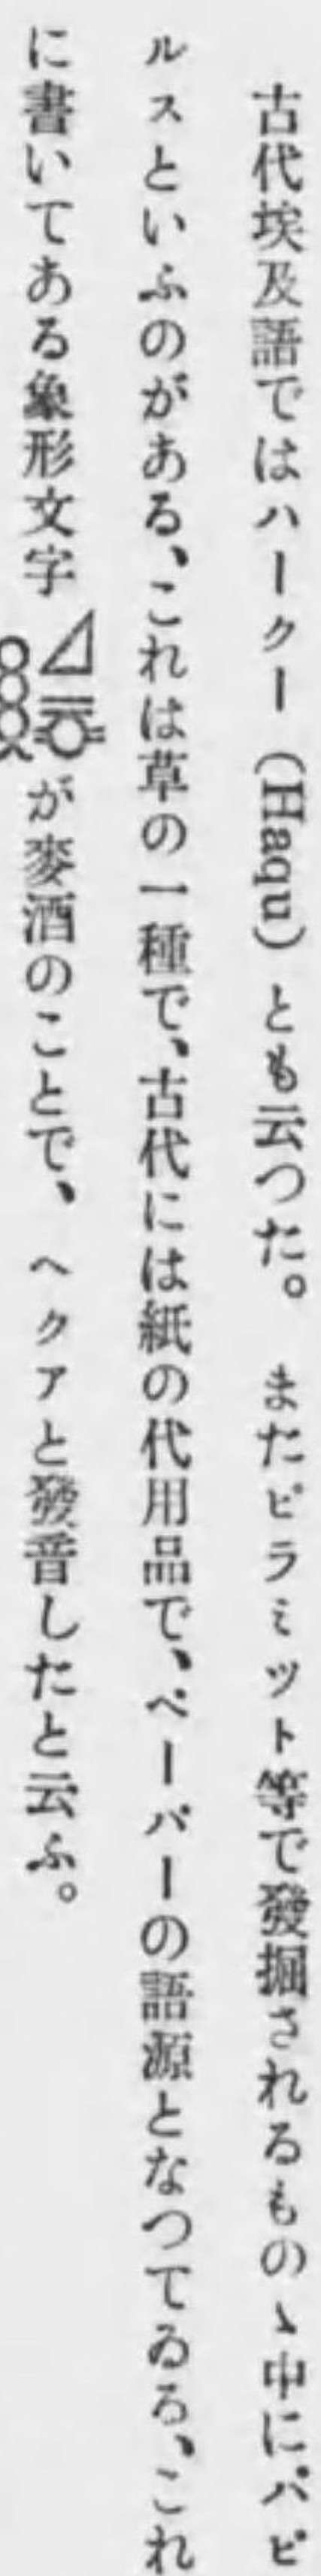 古代埃及語ではハークー（Haqu）とも云つた。またピラミツト等で發掘されるものゝ中にパピ
ルスといふのがある、これは草の一種で、古代には紙の代用品で、ペーパーの語源となつてゐる、これ
に書いてある象形文字が麥酒のことで、ヘクアと發音したと云ふ。